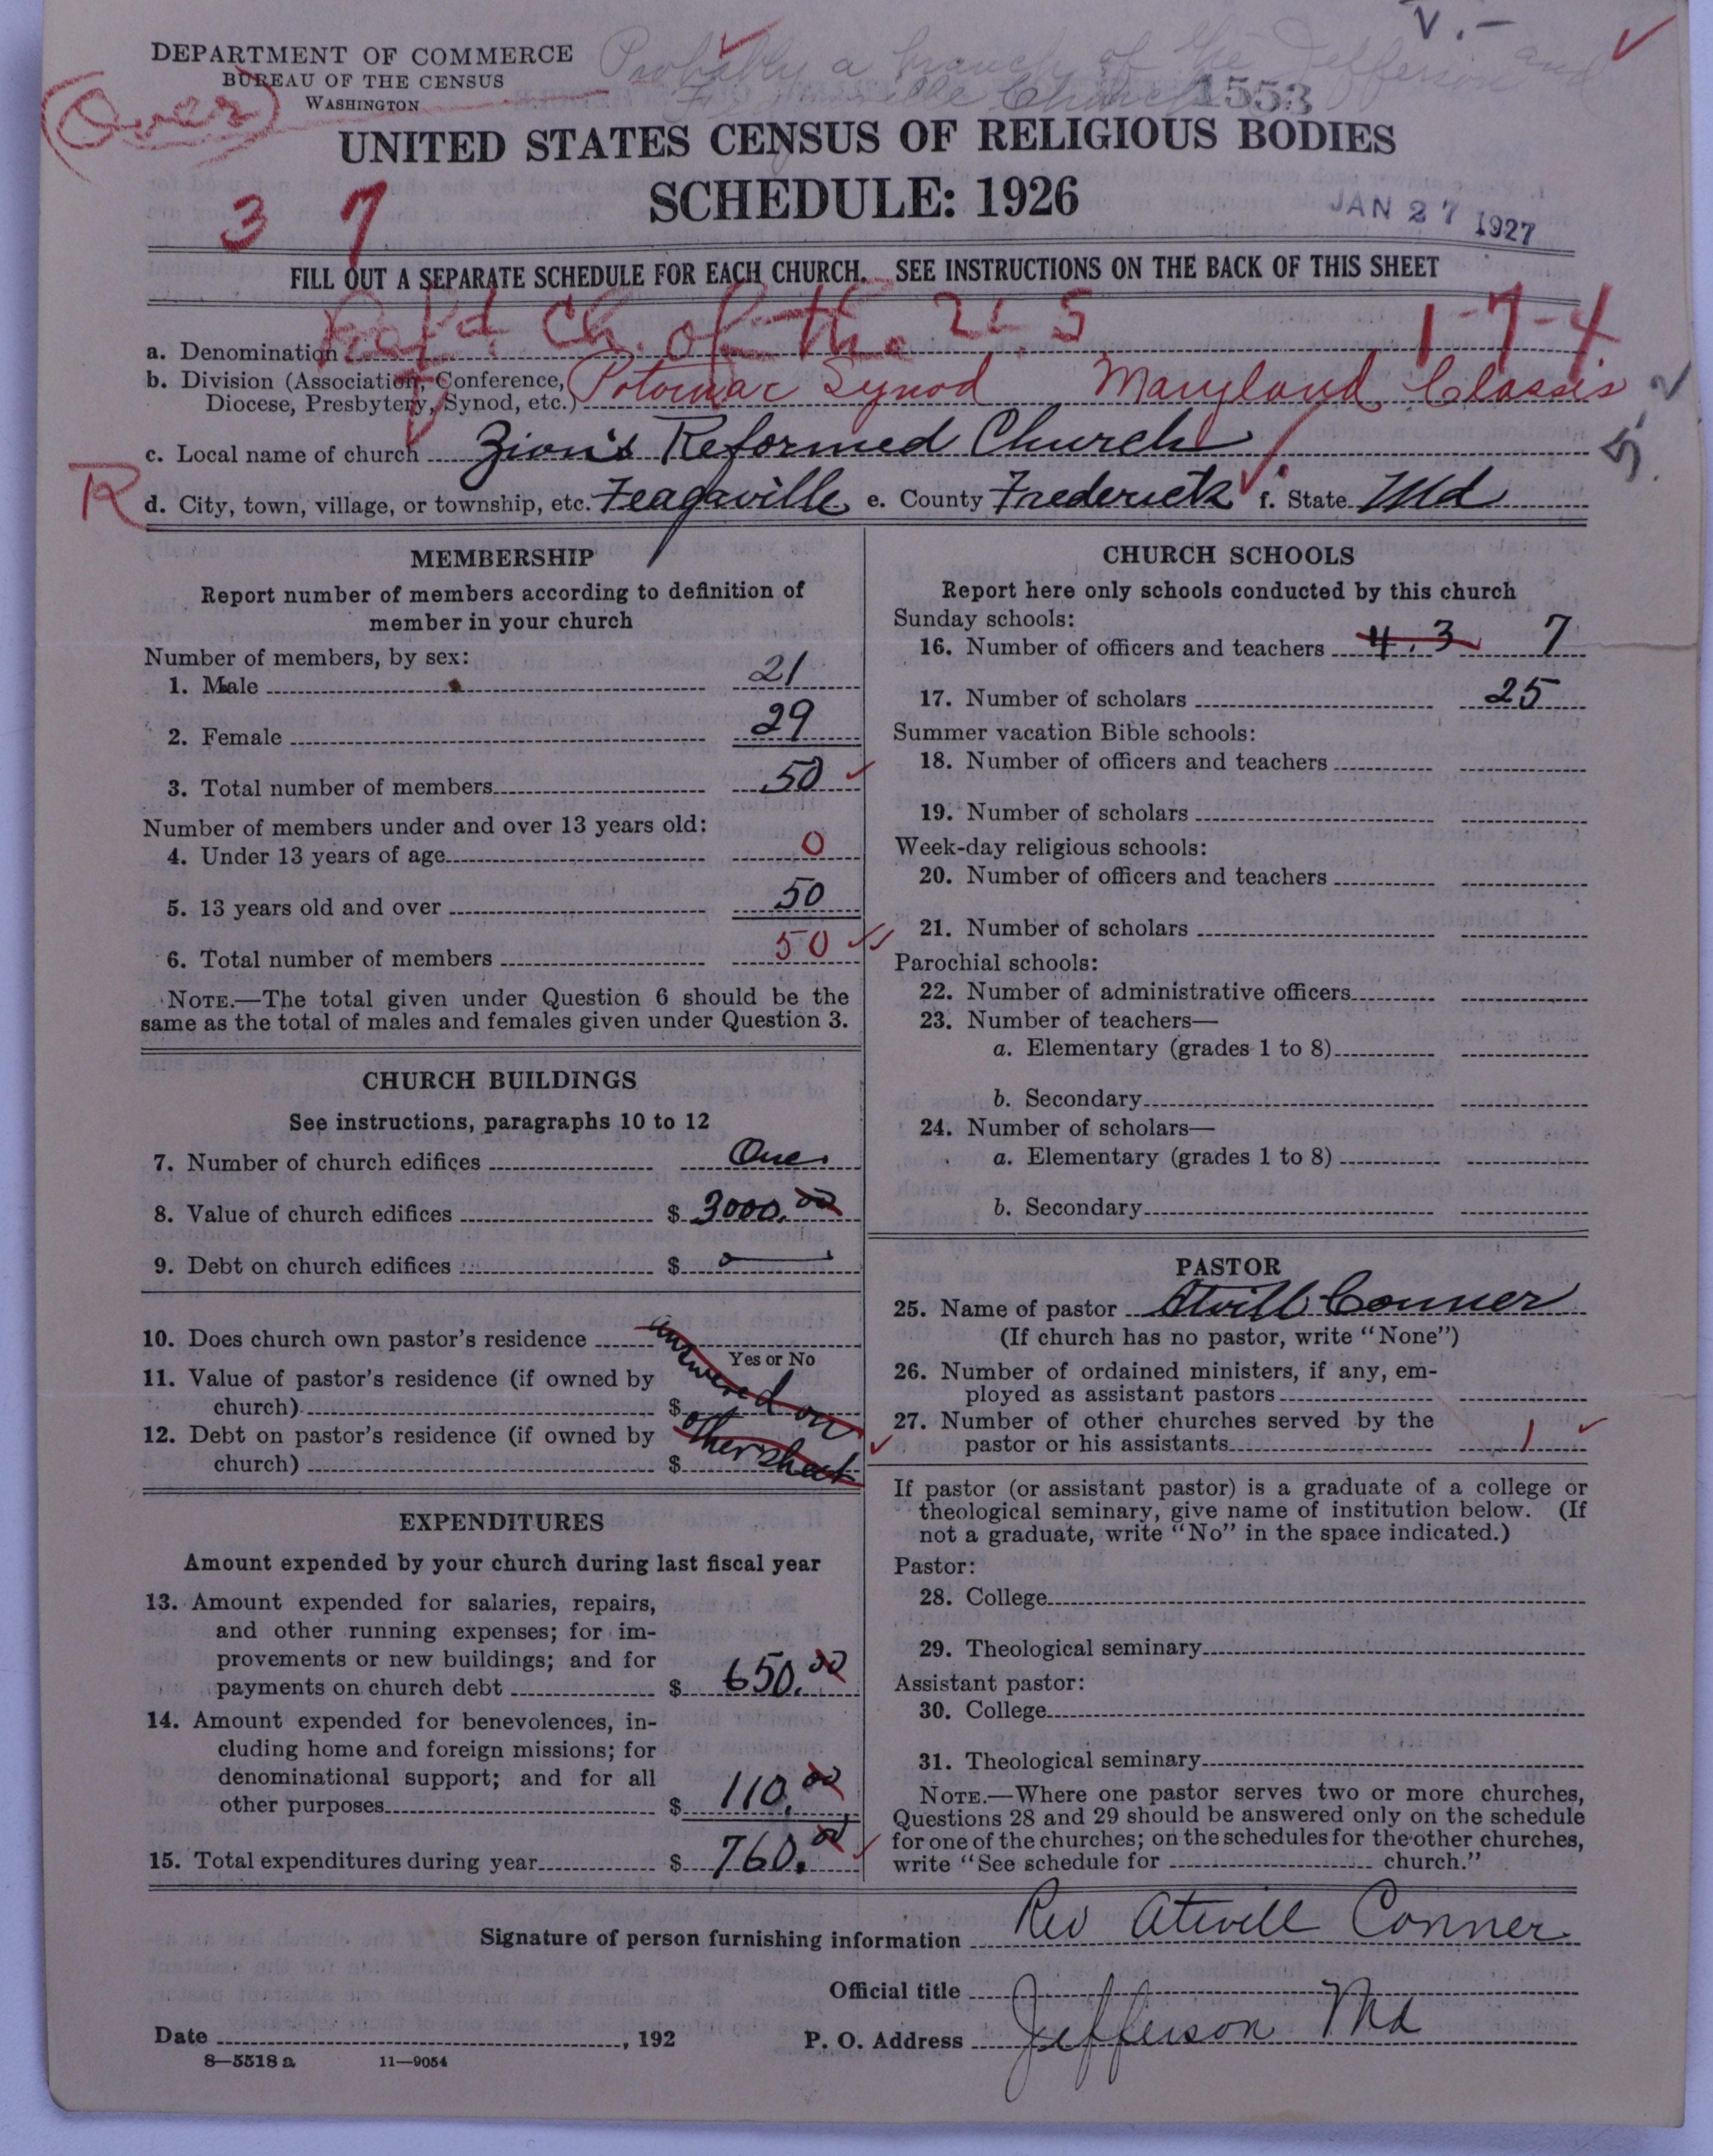 V. -
DEPARTMENT OF COMMERCE
BUREAU OF THE CENSUS
WASHINGTON
Probably a branch of the Jefferson and
Feagaville Church
1553
(Over)
UNITED STATES CENSUS OF RELIGIOUS BODIES
SCHEDULE: 1926
JAN 27 1927
3 7
FILL OUT A SEPARATE SCHEDULE FOR EACH CHURCH. SEE INSTRUCTIONS ON THE BACK OF THIS SHEET
a. Denomination Ref'd Ch. of the U S 1-7-4
b. Division (Association, Conference,
Diocese, Presbytery, Synod, etc.) Potomac Synod Maryland Classis
c. Local name of church Zion's Reformed Church
R
d. City, town, village, or township, etc. Feagaville e. County Frederick f. State Md
MEMBERSHIP
Report number of members according to definition of
member in your church
Number of members, by sex:
1. Male 21
2. Female 29
3. Total number of members 50
Number of members under and over 13 years old:
4. Under 13 years of age 0
5. 13 years old and over 50
6. Total number of members 50
NOTE.—The total given under Question 6 should be the
same as the total of males and females given under Question 3.
CHURCH BUILDINGS
See instructions, paragraphs 10 to 12
7. Number of church edifices One
8. Value of church edifices $ 3000.00
9. Debt on church edifices $ —
10. Does church own pastor's residence
Yes or No
11. Value of pastor's residence (if owned by
church) $
12. Debt on pastor's residence (if owned by
church) $
answered on
other sheet
EXPENDITURES
Amount expended by your church during last fiscal year
13. Amount expended for salaries, repairs,
and other running expenses; for im-
provements or new buildings; and for
payments on church debt $ 650.00
14. Amount expended for benevolences, in-
cluding home and foreign missions; for
denominational support; and for all
other purposes $ 110.00
15. Total expenditures during year $ 760.00
CHURCH SCHOOLS
Report here only schools conducted by this church
Sunday schools:
16. Number of officers and teachers 4. 3 7
17. Number of scholars 25
Summer vacation Bible schools:
18. Number of officers and teachers
19. Number of scholars
Week-day religious schools:
20. Number of officers and teachers
21. Number of scholars
Parochial schools:
22. Number of administrative officers
23. Number of teachers—
a. Elementary (grades 1 to 8)
b. Secondary
24. Number of scholars—
a. Elementary (grades 1 to 8)
b. Secondary
PASTOR
25. Name of pastor Atvill Conner
(If church has no pastor, write "None")
26. Number of ordained ministers, if any, em-
ployed as assistant pastors
27. Number of other churches served by the
pastor or his assistants 1
If pastor (or assistant pastor) is a graduate of a college or
theological seminary, give name of institution below. (If
not a graduate, write "No" in the space indicated.)
Pastor:
28. College
29. Theological seminary
Assistant pastor:
30. College
31. Theological seminary
NOTE.—Where one pastor serves two or more churches,
Questions 28 and 29 should be answered only on the schedule
for one of the churches; on the schedules for the other churches,
write "See schedule for church."
Signature of person furnishing information Rev Atvill Conner
Official title
Date , 192 P. O. Address Jefferson Md
8—5518 a 11—9054